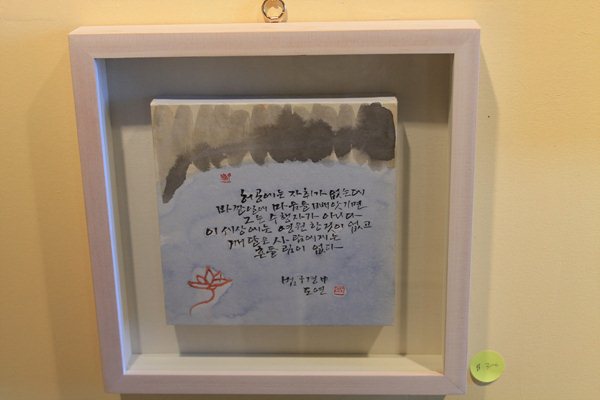 허공에는 자취가 없는데
바깥일에 마음을 빼앗기면
그는 수행자가 아니다
이 세상에는 영원한 것이 없고
깨달은 사람에게는
흔들림이 없다
법구경 中
도연